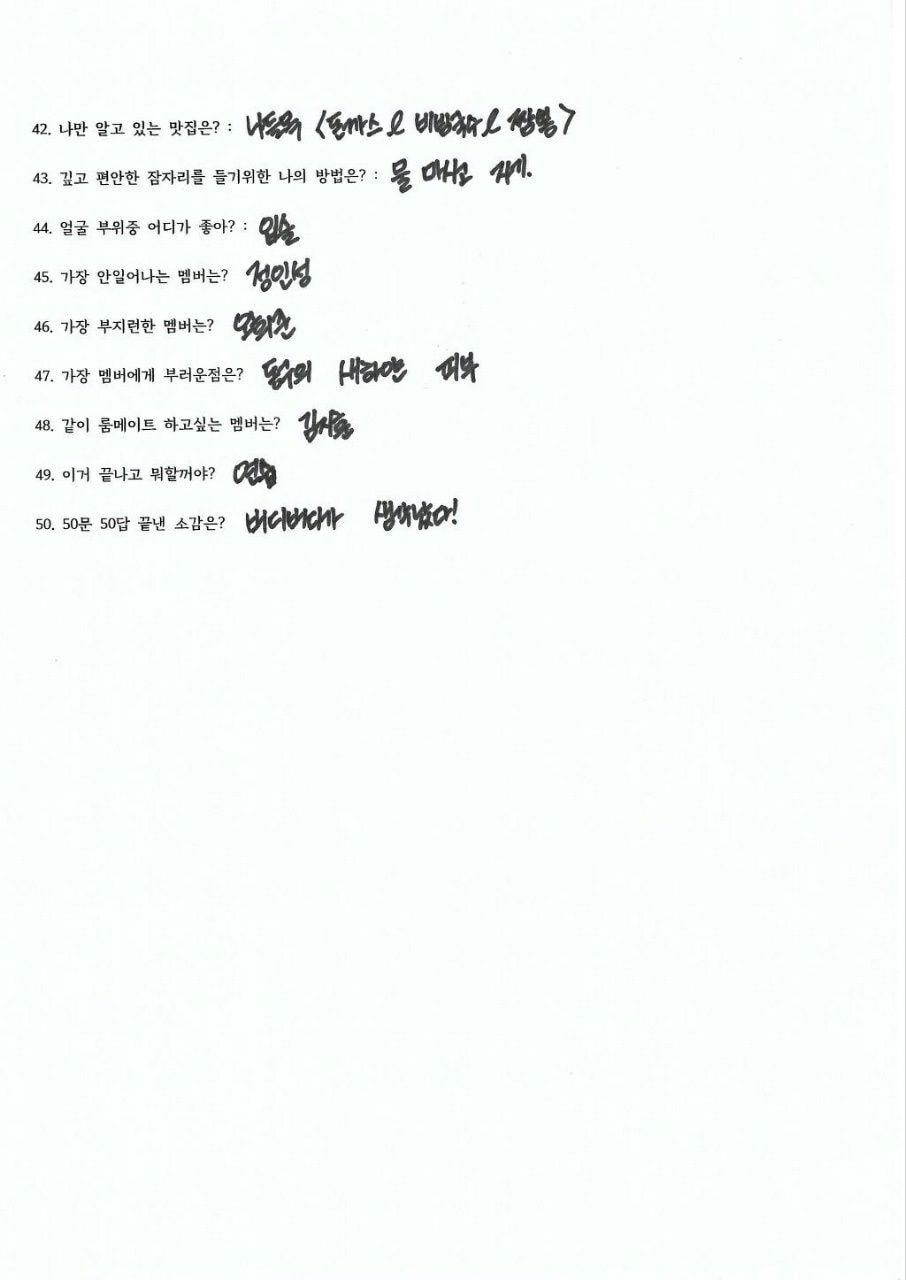 42. 나만 알고 있는 맛집은? : 나들목 <돈까스 & 비빔국수 & 짬뽕>
43. 깊고 편안한 잠자리를 들기위한 나의 방법은? : 물 마시고 자기.
44. 얼굴 부위중 어디가 좋아? : 입술
45. 가장 안일어나는 멤버는? 정인성
46. 가장 부지런한 멤버는? 오희준
47. 가장 멤버에게 부러운점은? 동수의 새하얀 피부
48. 같이 룸메이트 하고싶는 멤버는? 김지훈
49. 이거 끝나고 뭐할꺼야? 연습
50. 50문 50답 끝낸 소감은? 버디버디가 생각났다!